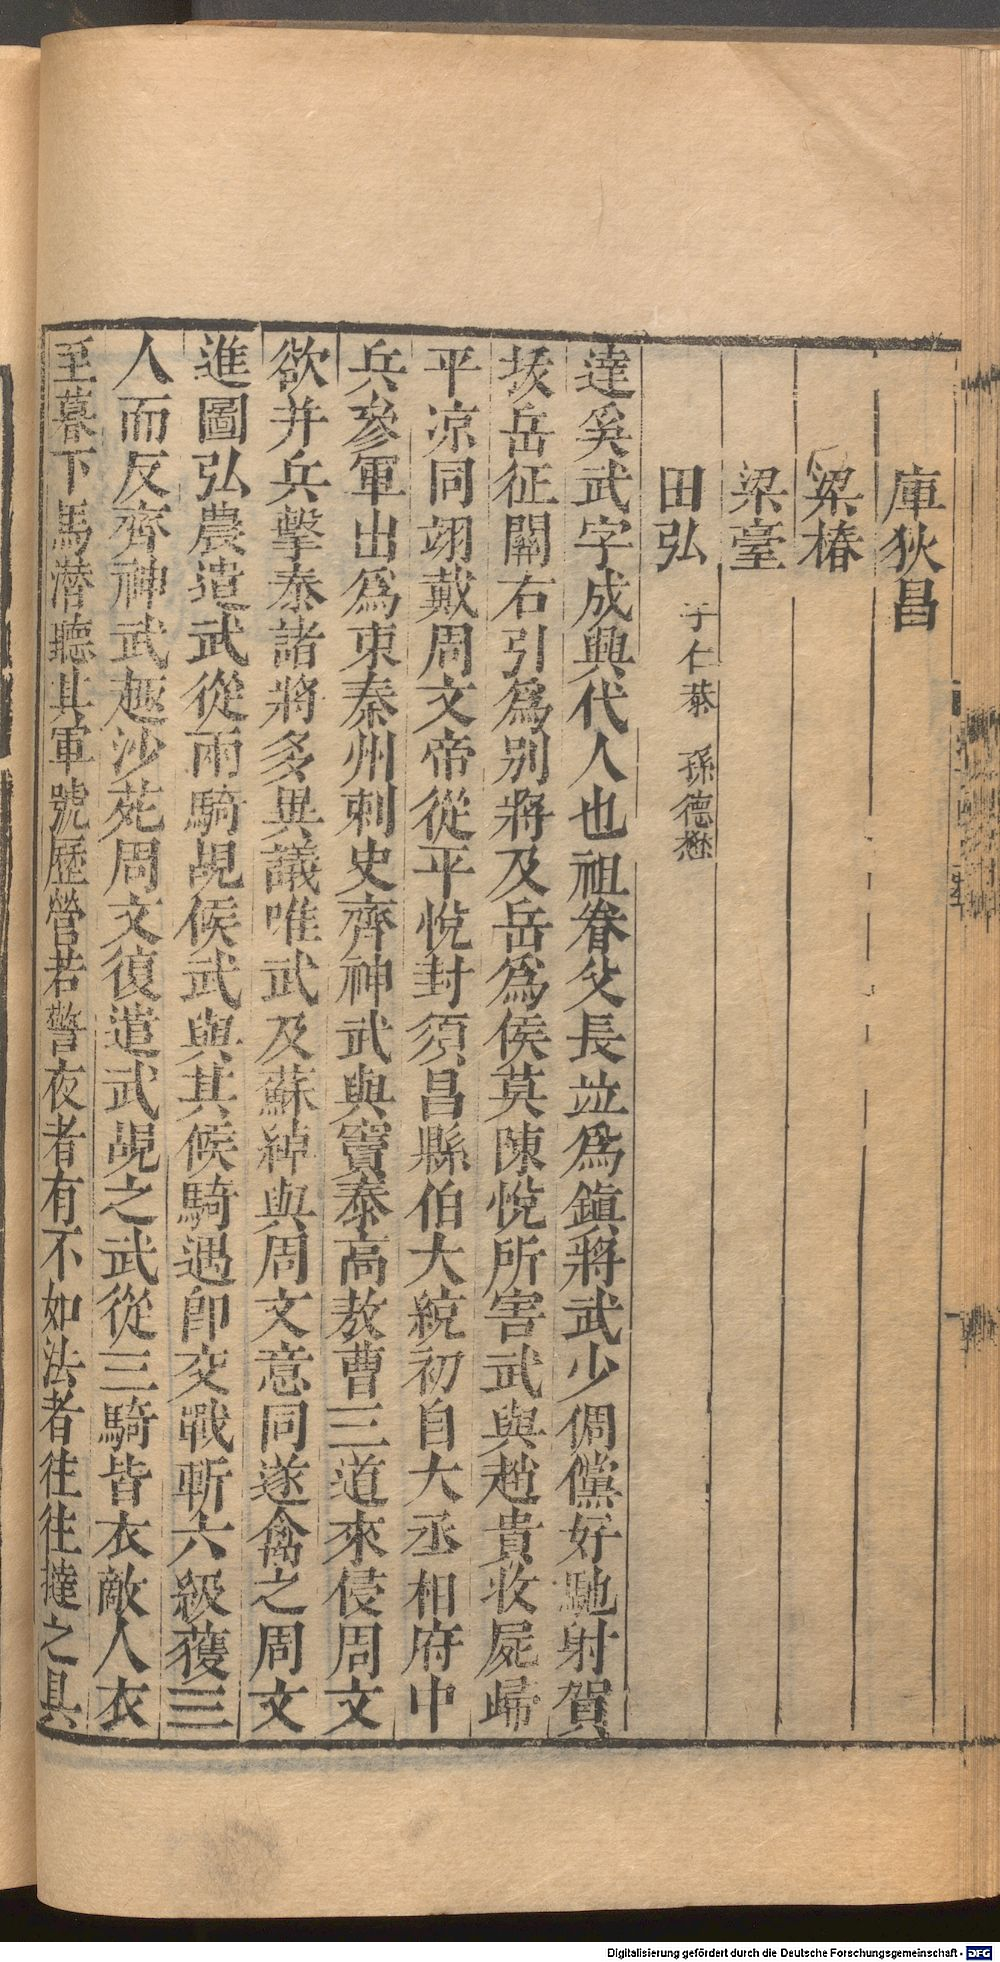 庫狄昌
梁椿
梁臺
田弘 子仁恭 孫德懋
達奚武字成興代人也祖眷父長竝爲鎮將武少倜儻好馳射賀
拔岳征關右引爲別將及岳爲侯莫陳悅所害武與趙貴收屍歸
平凉同翊戴周文帝從平悅封須昌縣伯大統初自大丞相府中
兵參軍出爲東秦州刺史齊神武與竇泰高敖曹三道來侵周文
欲并兵擊泰諸將多異議唯武及蘇綽與周文意同遂禽之周文
進圖弘農遣武從兩騎覘候武與其候騎遇卽交戰斬六級獲三
人而反齊神武趣沙苑周文復遣武覘之武從三騎皆衣敵人衣
至暮下馬潜聽其軍號歷營若警夜者有不如法者往往撻之具
Digitalisierung gefördert durch die Deutsche Forschungsgemeinschaft - DFG